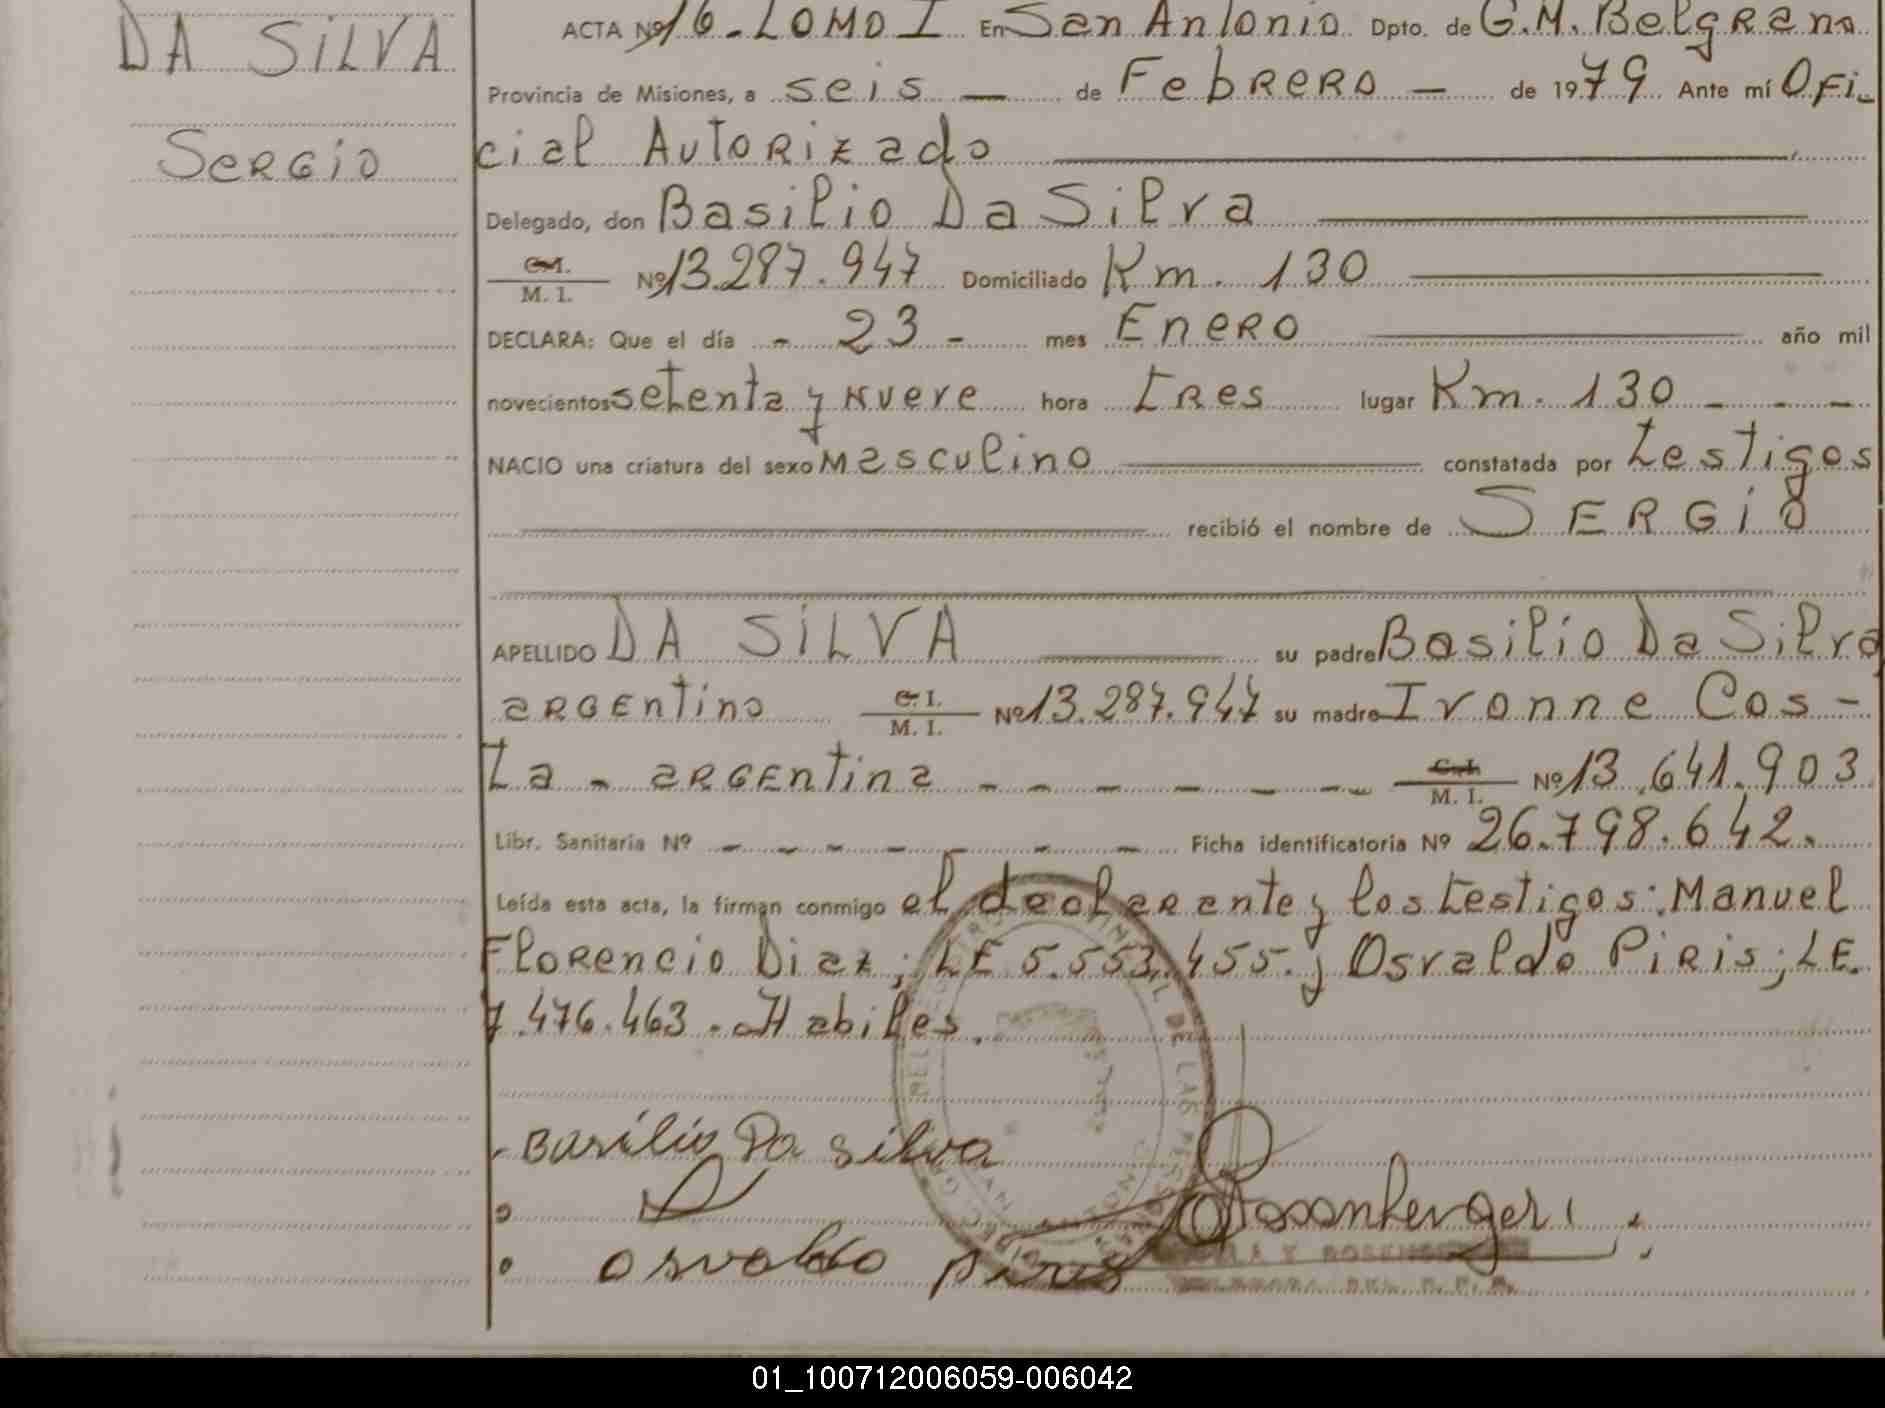 DA SILVA
SERGIO
ACTA Nº 16.- TOMO I En San Antonio Dpto. de G.M. Belgrano
Provincia de Misiones, a seis — de Febrero — de 1979 Ante mí Ofi-
cial Autorizado
Delegado, don Basilio Da Silva
C.I. / M. I. Nº 13.287.947 Domiciliado Km. 130
DECLARA: Que el día - 23 - mes Enero año mil
novecientos setenta y nueve hora tres lugar Km. 130 - - -
NACIO una criatura del sexo Masculino constatada por testigos
recibió el nombre de SERGIO
APELLIDO DA SILVA su padre Basilio Da Silva
argentino C. I. / M. I. Nº 13.287.947 su madre Ivonne Cos-
ta - argentina - - - - - - C.I. / M. I. Nº 13.641.903
Libr. Sanitaria Nº - - - - - - - Ficha identificatoria Nº 26.798.642.
Leída esta acta, la firman conmigo el declarante y los testigos: Manuel
Florencio Diaz; LE 5.553.455. y Osvaldo Piris; LE.
7.476.463. Habiles.
Basilio Da Silva
Osvaldo piris
01_100712006059-006042